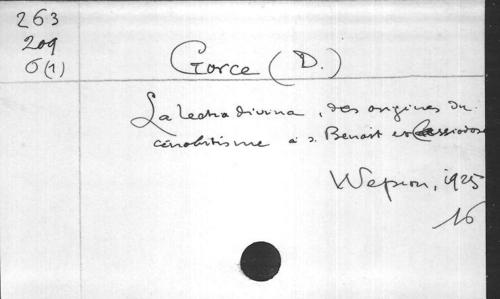 263
209
6(1)
Gorce (D.)
La lectio divina, des origines du
cénobitisme à s. Benoît et Cassiodore
Wépion, 1925
16